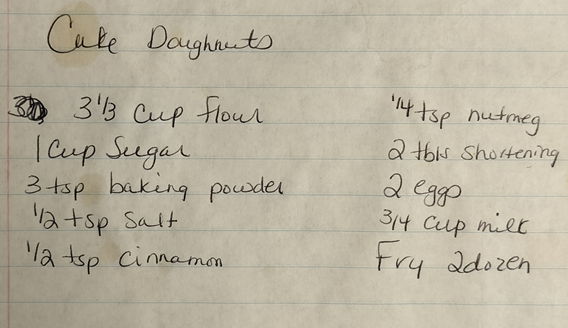 Cake Doughnuts
3 1/3 cup flour
1 cup Sugar
3 tsp baking powder
1/2 tsp Salt
1/2 tsp cinnamon
1/4 tsp nutmeg
2 tbls shortening
2 eggs
3/4 cup milk
Fry 2dozen